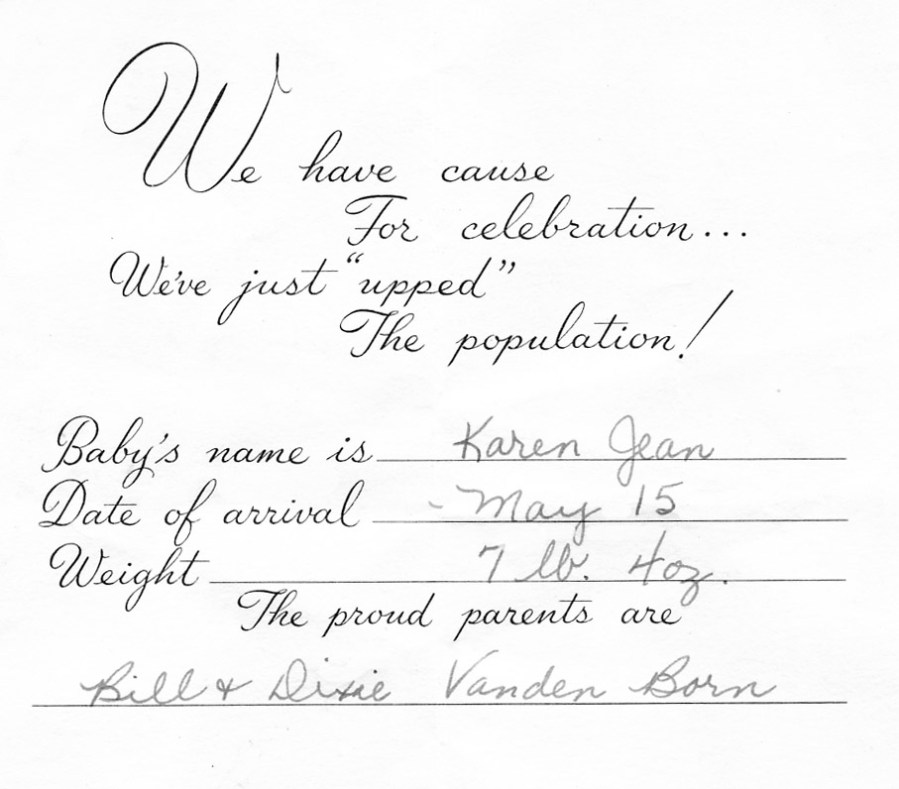 We have cause
For celebration...
We've just "upped"
The population!
Baby's name is Karen Jean
Date of arrival - May 15
Weight 7 lb. 4 oz.
The proud parents are
Bill & Dixie Vanden Born